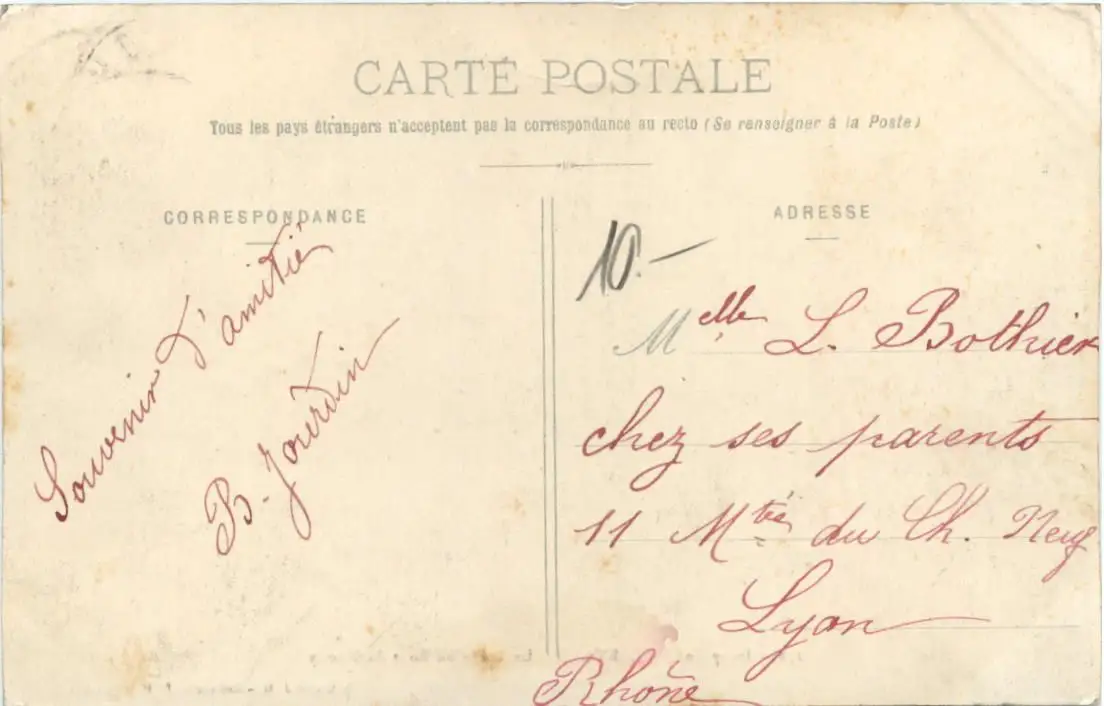 CARTE POSTALE
Tous les pays étrangers n'acceptent pas la correspondance au recto (Se renseigner à la Poste)
CORRESPONDANCE
Souvenir d'amitié
B. Jourdin
ADRESSE
10.—
Melle L. Bothier
chez ses parents
11 Mtée du Ch. Neuf
Lyon
Rhône